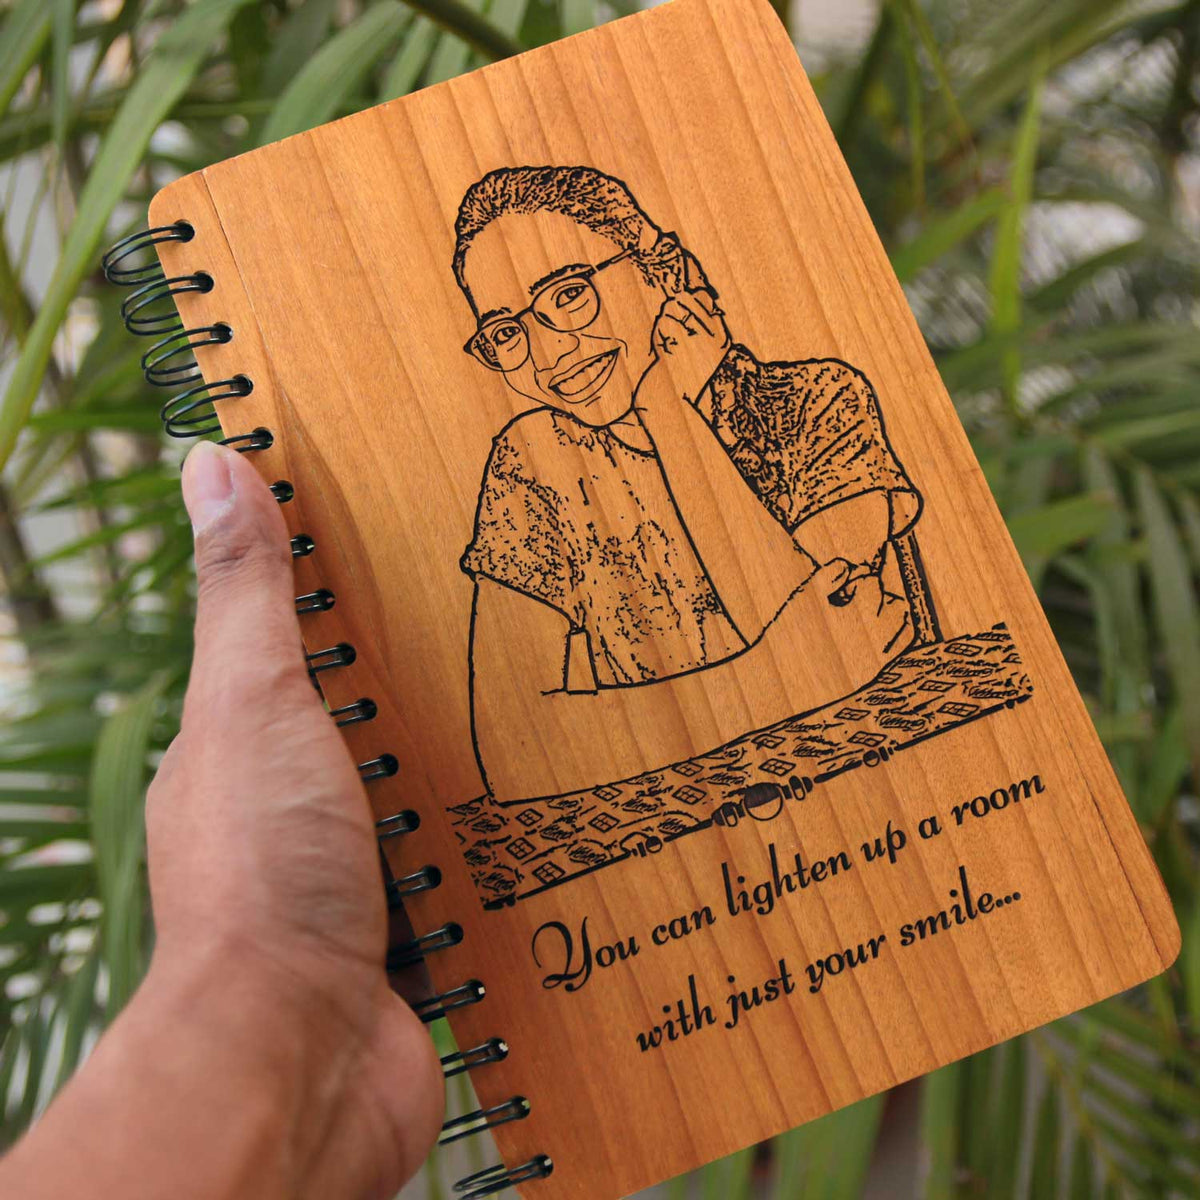 You can lighten up a room
with just your smile...